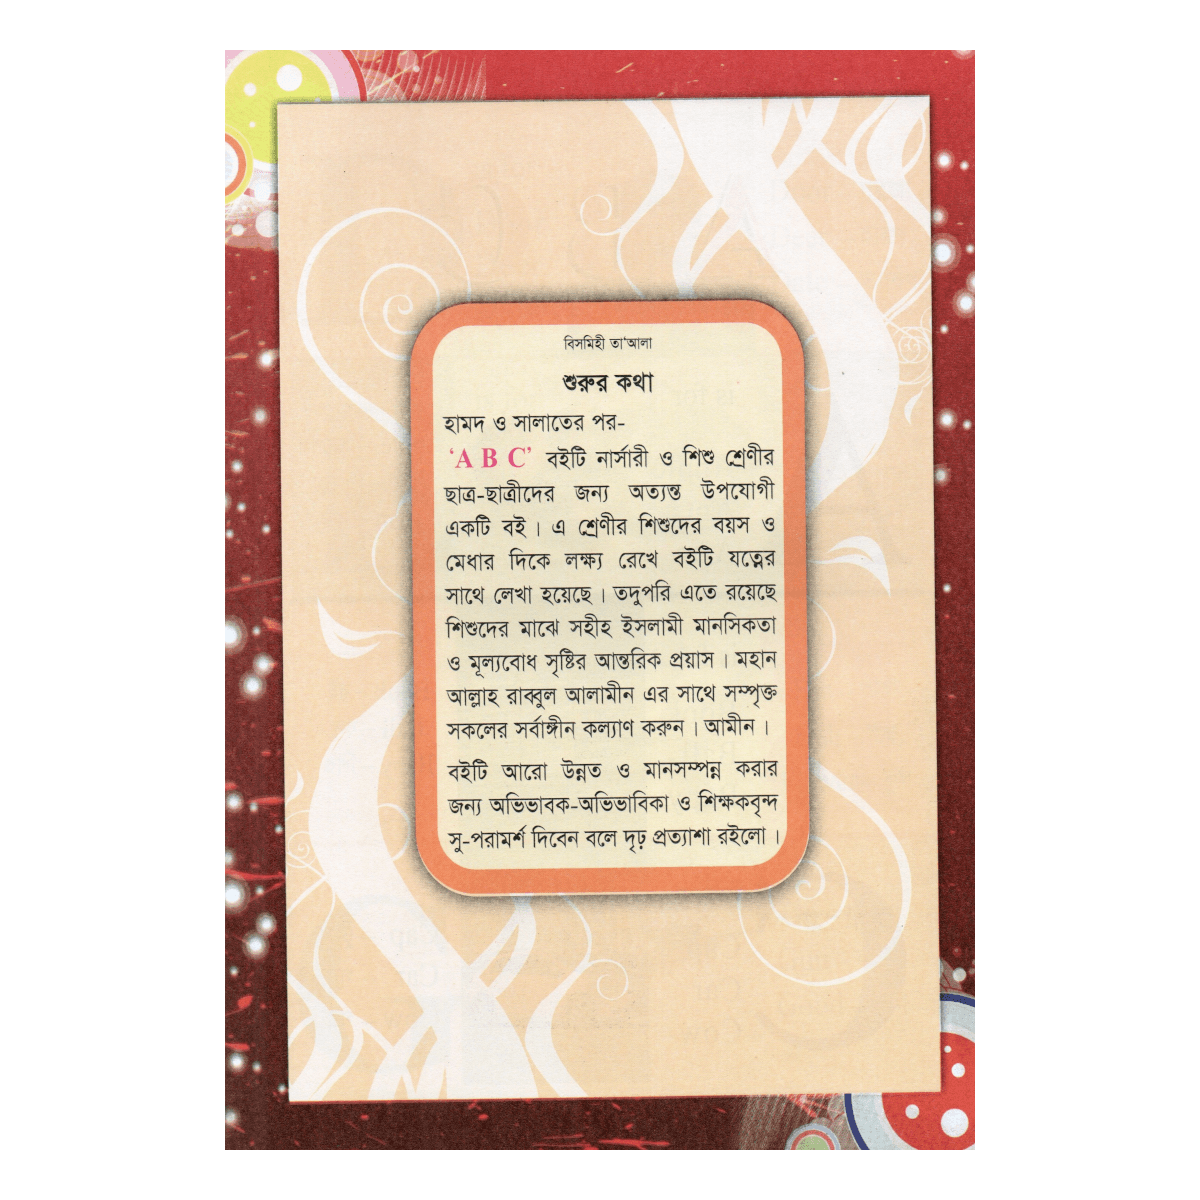 বিসমিহী তা'আলা
শুরুর কথা
হামদ ও সালাতের পর-
‘A B C’ বইটি নার্সারী ও শিশু শ্রেণীর
ছাত্র-ছাত্রীদের জন্য অত্যন্ত উপযোগী
একটি বই। এ শ্রেণীর শিশুদের বয়স ও
মেধার দিকে লক্ষ্য রেখে বইটি যত্নের
সাথে লেখা হয়েছে। তদুপরি এতে রয়েছে
শিশুদের মাঝে সহীহ ইসলামী মানসিকতা
ও মূল্যবোধ সৃষ্টির আন্তরিক প্রয়াস। মহান
আল্লাহ রাব্বুল আলামীন এর সাথে সম্পৃক্ত
সকলের সর্বাঙ্গীন কল্যাণ করুন। আমীন।
বইটি আরো উন্নত ও মানসম্পন্ন করার
জন্য অভিভাবক-অভিভাবিকা ও শিক্ষকবৃন্দ
সু-পরামর্শ দিবেন বলে দৃঢ় প্রত্যাশা রইলো।